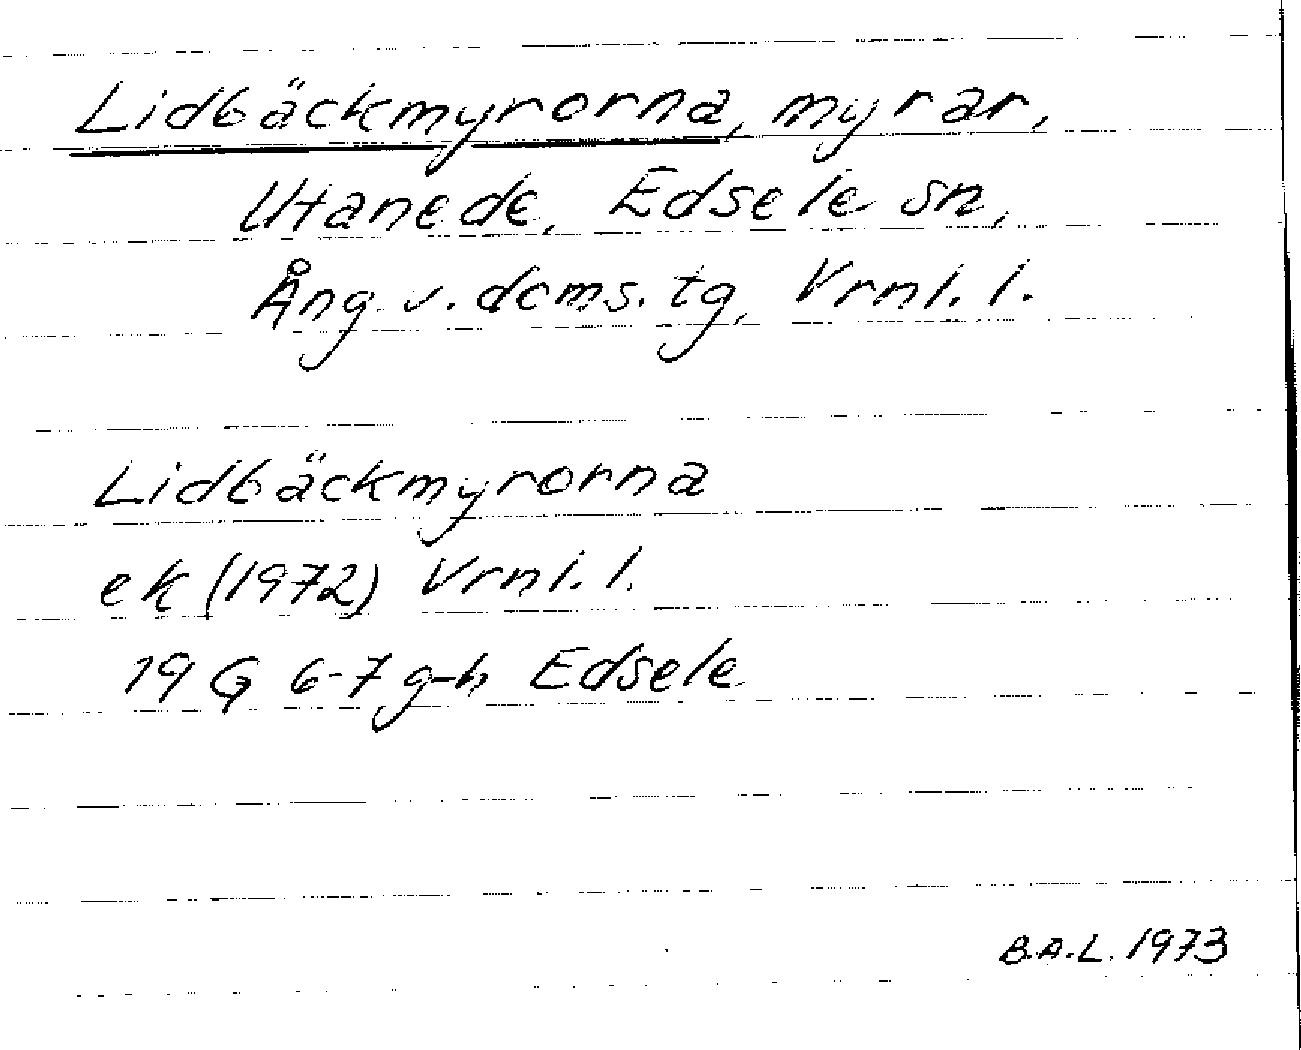 Lidbäckmyrorna, myrar,
Utanede, Edsele sn,
Ång. v. doms. tg, Vrnl. l.
Lidbäckmyrorna
ek (1972) Vrnl. l.
19 G 6-7 g-h Edsele
B.A.L. 1973